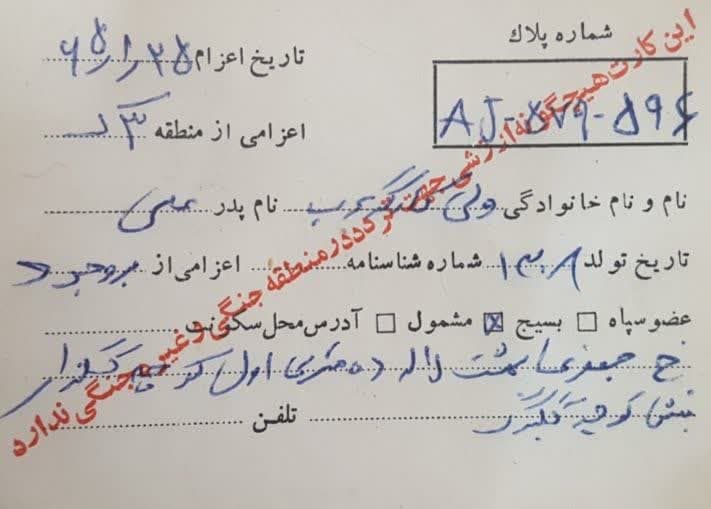 شماره پلاك
AJ-۵۷۹-۵۹۴
تاریخ اعزام ۶۵/۱/۲۵
اعزامی از منطقه ۳
نام و نام خانوادگی ولی نام پدر علی
تاریخ تولد ۱۳۰۸ شماره شناسنامه اعزامی از بروجرد
عضو سپاه بسیج مشمول آدرس محل سکونت
خ جعفری پشت لاله ده متری اول کوچه گلزار
نبش کوچه
تلفن
این کارت هیچگونه ارزشی جهت تردد در منطقه جنگی و غیر جنگی ندارد